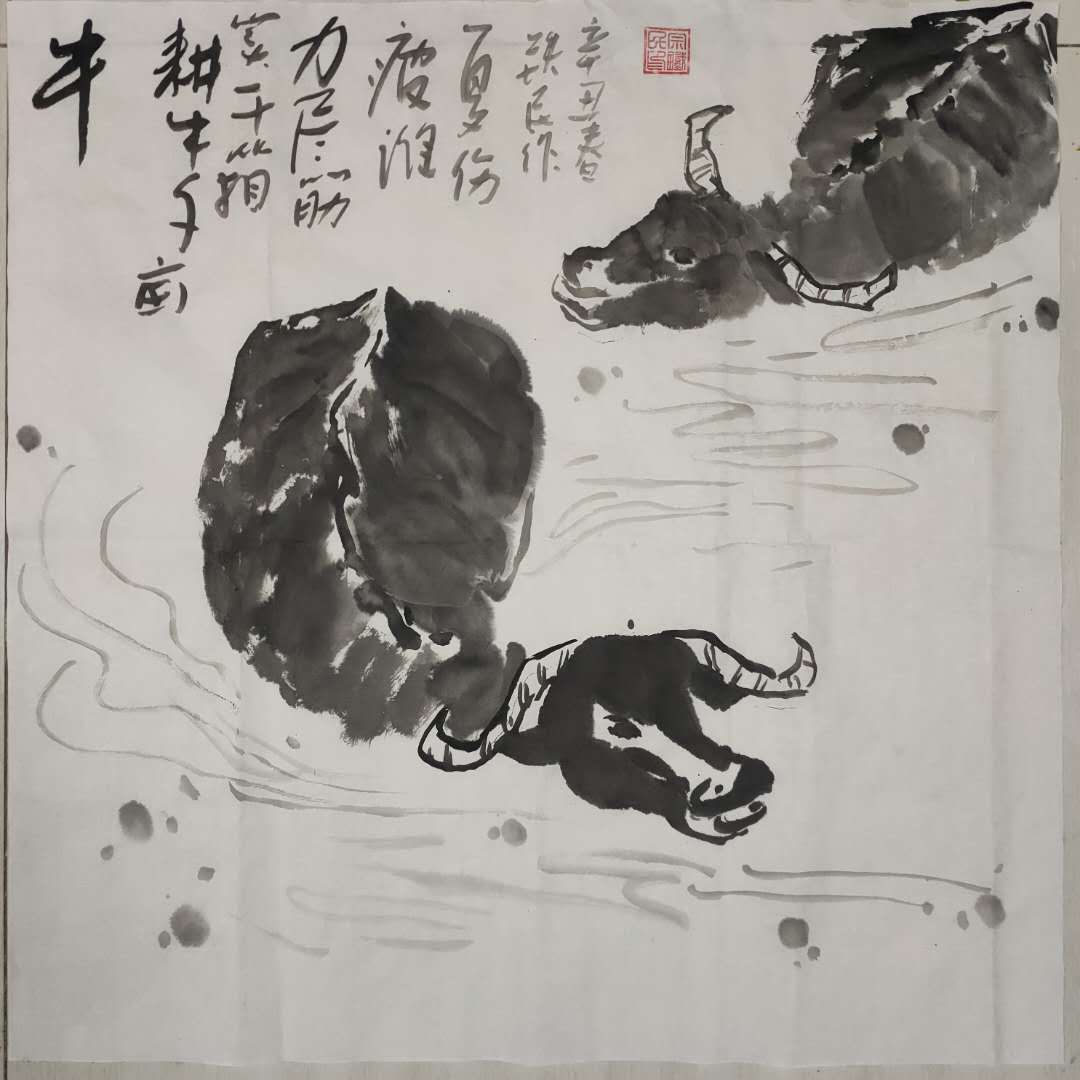 牛
耕牛千亩
实千箱
力尽筋
疲谁
复伤
辛丑春
铁民作